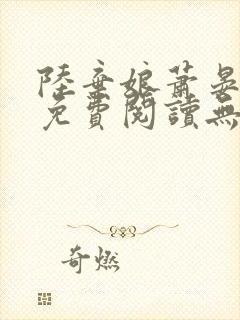 陸棄娘蕭晏
免費閱讀無
奇燃